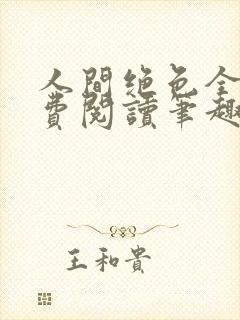 人間絶色全
費閱讀筆趣
王和貴